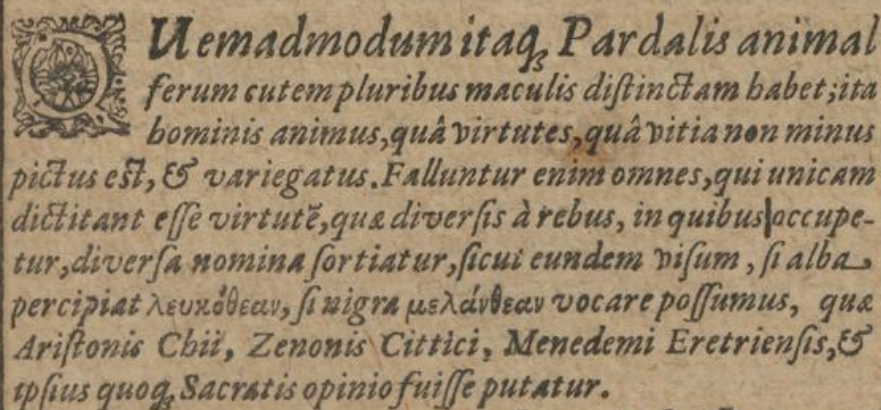 QUemadmodum itaq; Pardalis animal
ferum cutem pluribus maculis distinctam habet; ita
hominis animus, quâ virtutes, quâ vitia non minus
pictus est, & variegatus. Falluntur enim omnes, qui unicam
dictitant esse virtutẽ, quæ diversis à rebus, in quibus occupe-
tur, diversa nomina sortiatur, sicui eundem visum, si alba
percipiat λευκόθεαν, si nigra μελάνθεαν vocare possumus, quæ
Aristonis Chii, Zenonis Cittici, Menedemi Eretriensis, &
ipsius quoq; Sacratis opinio fuisse putatur.